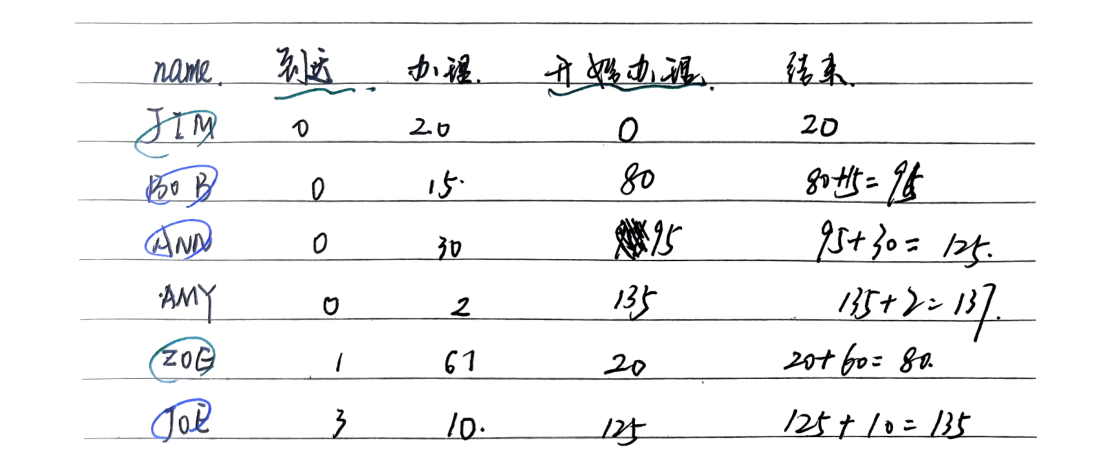 name. 到达. 办理. 开始办理. 结束.
JIM 0 20 0 20
BOB 0 15. 80 80+15=95
ANN 0 30 95 95+30=125.
AMY 0 2 135 135+2=137.
ZOE 1 61 20 20+60=80.
JOE 3 10. 125 125+10=135